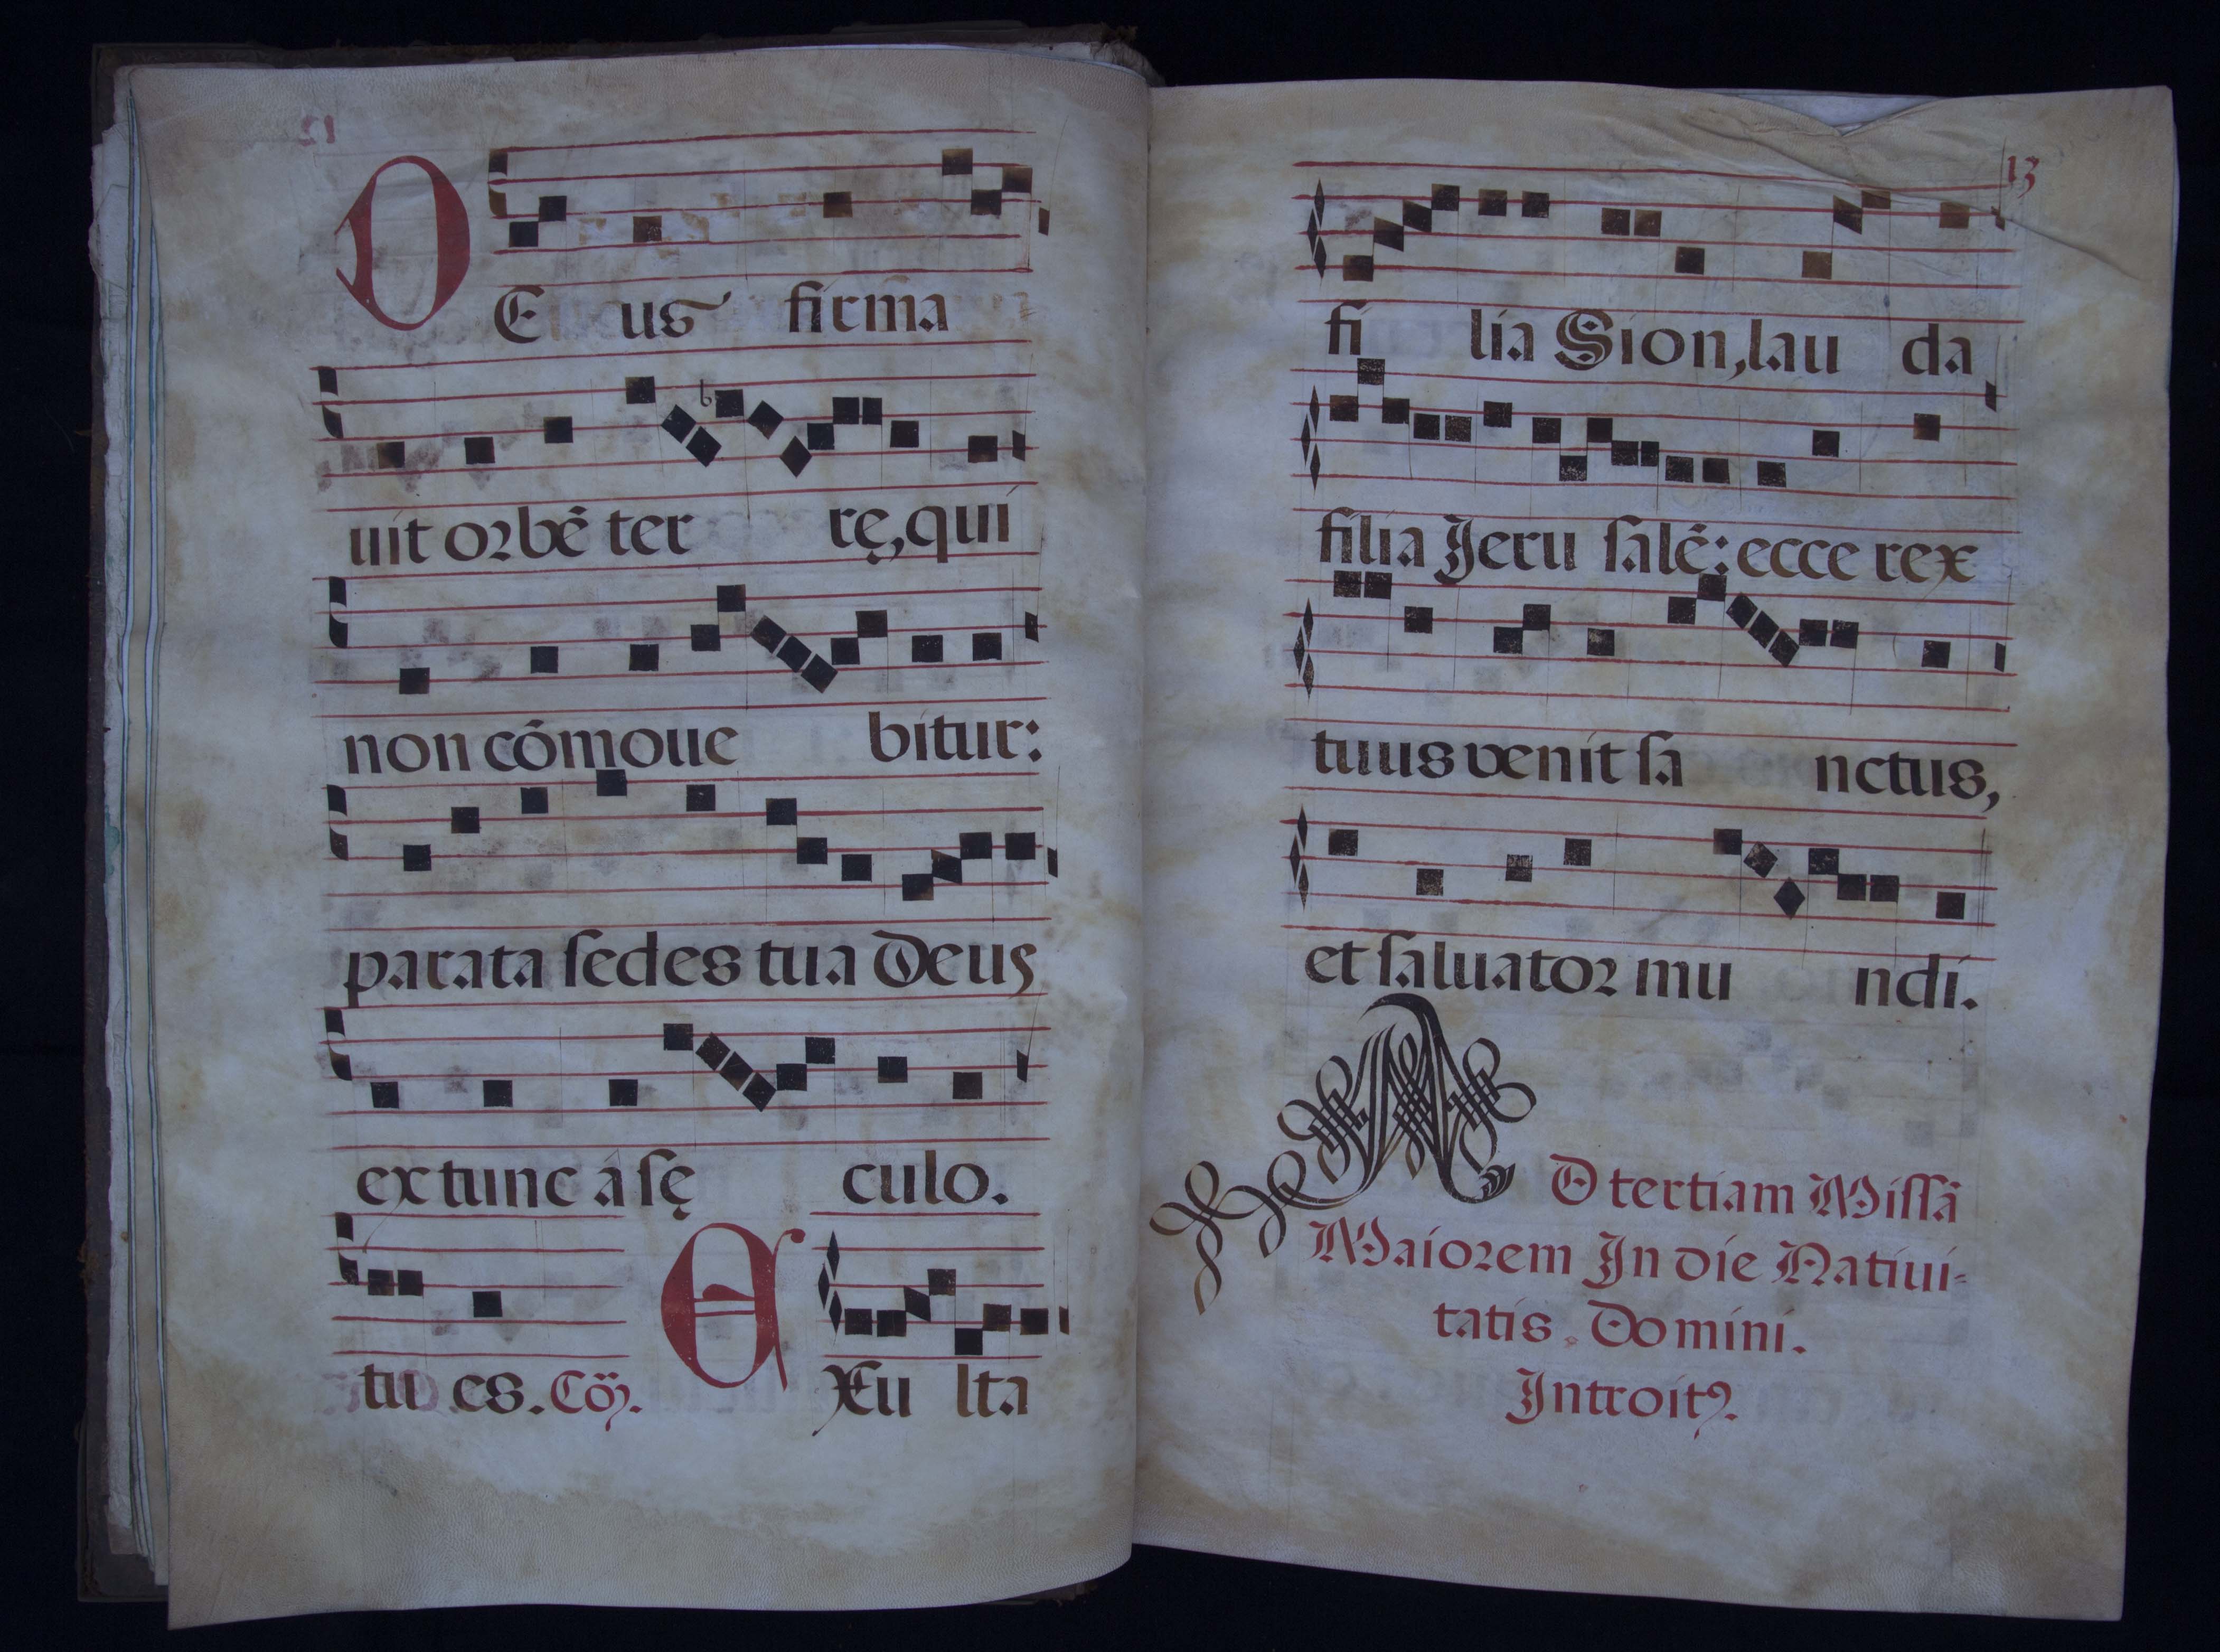 DEus firma
uit orbē ter rę, qui
non cōmoue bitur:
parata ſedes tua Deus
ex tunc á ſę culo.
tu es. Cō̃. EXu lta
13
fi lia Sion, lau da
filia Jeru ſalē: ecce rex
tuus venit ſa nctus,
et ſaluator mu ndi.
AD tertiam Miſſā
Maiorem In die Natiui-
tatis. Domini.
Introitꝰ.